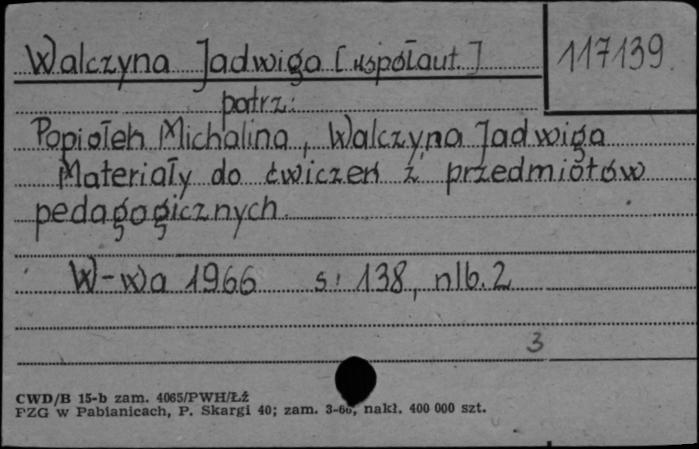 Walczyna Jadwiga [współaut.]
117139
patrz:
Popiołek Michalina, Walczyna Jadwiga
Materiały do ćwiczeń z przedmiotów
pedagogicznych.
W-wa 1966 s. 138, nlb. 2
3
CWD/B 15-b zam. 4065/PWH/ŁŻ
PZG w Pabianicach, P. Skargi 40; zam. 3-66, nakł. 400 000 szt.